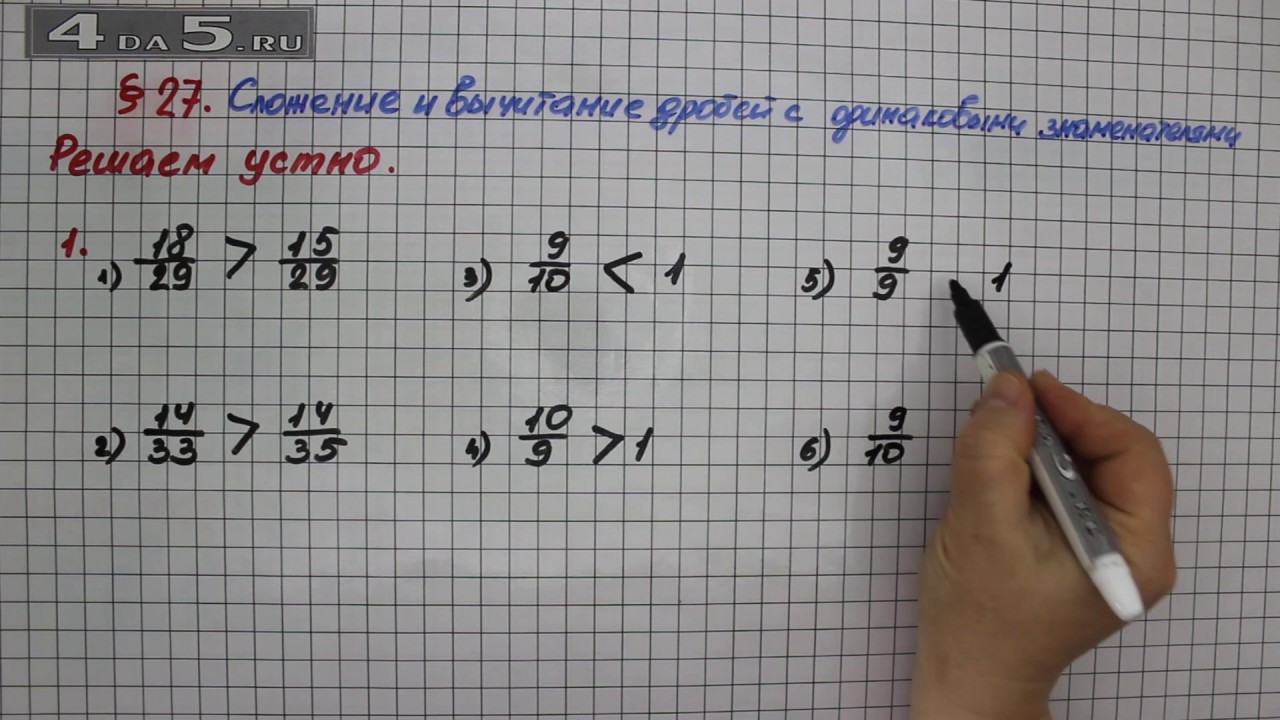 4DA5.RU
§ 27. Сложение и вычитание дробей с одинаковыми знаменателями
Решаем устно.
1. 1) 18/29 > 15/29
3) 9/10 < 1
5) 9/9 1
2) 14/33 > 14/35
4) 10/9 > 1
6) 9/10